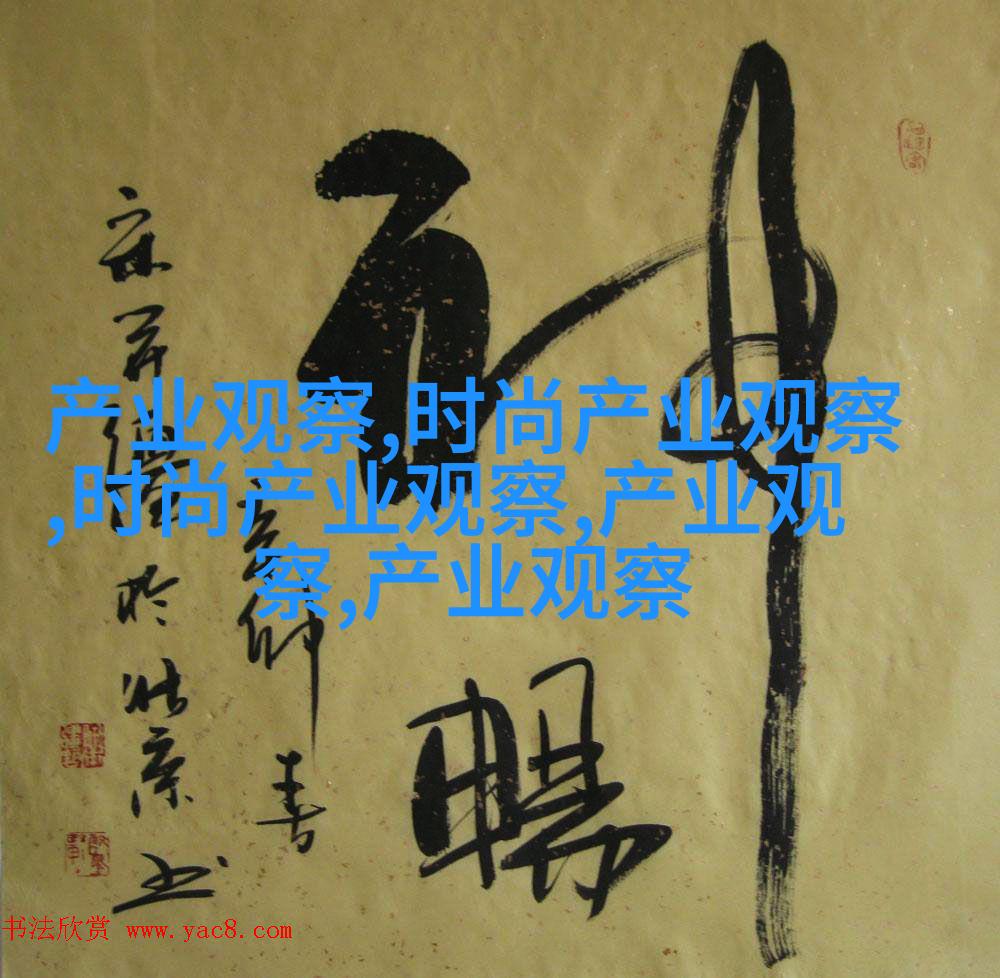 神
暢
仲春
於北京书
产业观察,时尚产业观察
,时尚产业观察,产业观
察,产业观察
书法欣赏 www.yac8.com